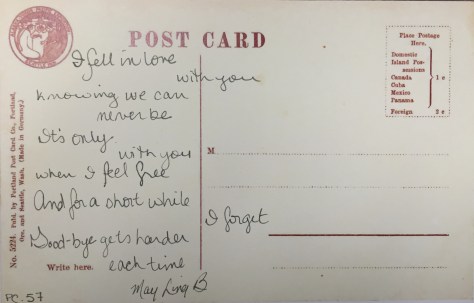 POST CARD
Place Postage
Here.
Domestic
Inland Pos-
sessions
Canada
Cuba
Mexico
Panama
1c
Foreign 2c
I fell in love
with you
knowing we can
never be
It's only
with you
when I feel free
And for a short while
I forget
Good-bye gets harder
each time
May Ling B
Write here.
M
No. 5224. Publ. by Portland Post Card Co., Portland,
Ore. and Seattle, Wash. (Made in Germany.)
PC.57